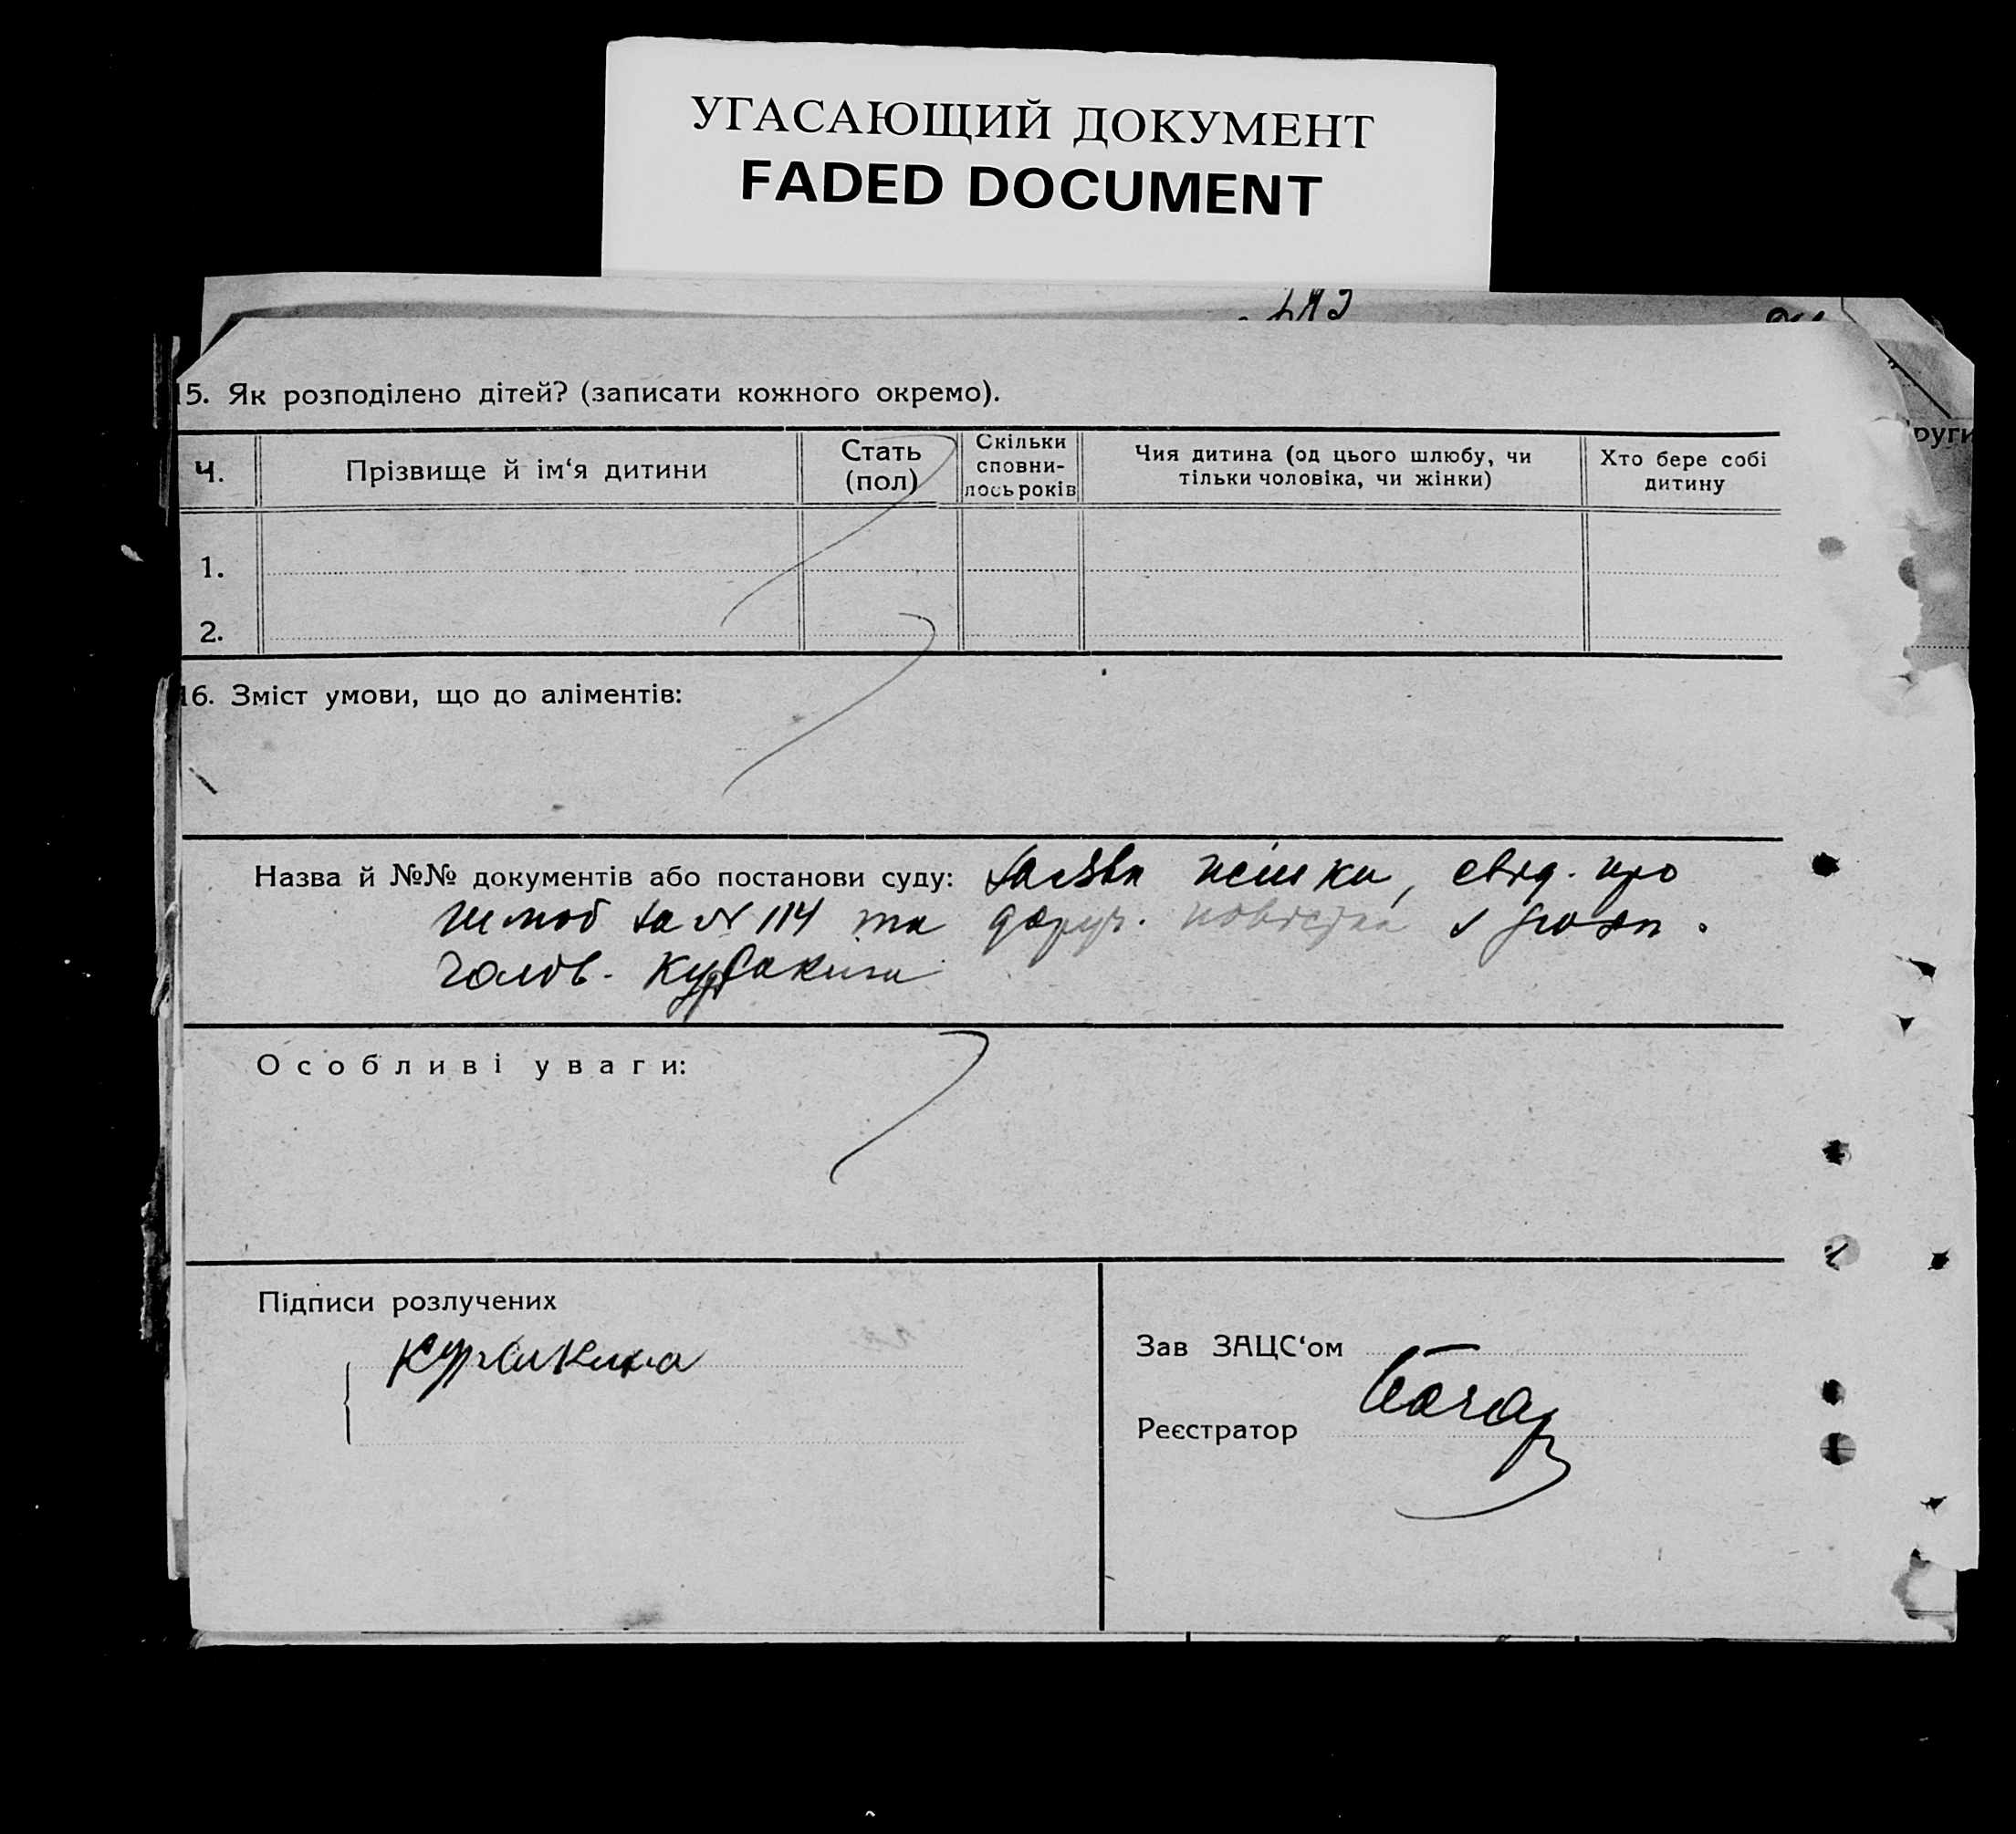 УГАСАЮЩИЙ ДОКУМЕНТ
FADED DOCUMENT
15. Як розподілено дітей? (записати кожного окремо).
Ч.
Прізвище й ім‘я дитини
Стать
(пол)
Скільки
сповни-
лось років
Чия дитина (од цього шлюбу, чи
тільки чоловіка, чи жінки)
Хто бере собі
дитину
1.
2.
16. Зміст умови, що до аліментів:
Назва й №№ документів або постанови суду: Заява жінки, свід. про
шлюб за № 114 та повістка з
чолов. Куракина
Особливі уваги:
Підписи розлучених
Куракина
Зав ЗАЦС‘ом
Реєстратор
руги